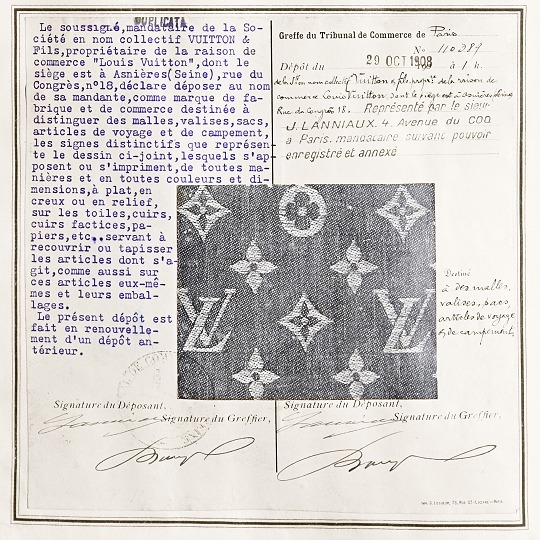 DUPLICATA
Le soussigné,mandataire de la So-
ciété en nom collectif VUITTON &
Fils,propriétaire de la raison de
commerce "Louis Vuitton",dont le
siège est à Asnières(Seine),rue du
Congrès,nº18,déclare déposer au nom
de sa mandante,comme marque de fa-
brique et de commerce destinée à
distinguer des malles,valises,sacs,
articles de voyage et de campement,
les signes distinctifs que représen-
te le dessin ci-joint,lesquels s'ap-
posent ou s'impriment,de toutes ma-
nières et en toutes couleurs et di-
mensions,à plat,en
creux ou en relief,
sur les toiles,cuirs,
cuirs factices,pa-
piers,etc..servant à
recouvrir ou tapisser
les articles dont s'a-
git,comme aussi sur
ces articles eux-mê-
mes et leurs embal-
lages.
Le présent dépôt est
fait en renouvelle-
ment d'un dépôt an-
térieur.
Signature du Déposant,
Signature du Greffier,
Greffe du Tribunal de Commerce de Paris
No 110281
Dépôt du 29 OCT 1908 à 1 h.
de la Sté en nom collectif Vuitton & fils, propre de la raison de
commerce Louis Vuitton dont le siège est à Asnières, Seine
Rue du Congrès 18. Représenté par le sieur
J. LANNIAUX. 4. Avenue du COQ
à Paris. mandataire suivant pouvoir
enregistré et annexé
LV
LV
Destiné
à des malles,
valises, sacs,
articles de voyage
& de campement
Signature du Déposant,
Signature du Greffier,